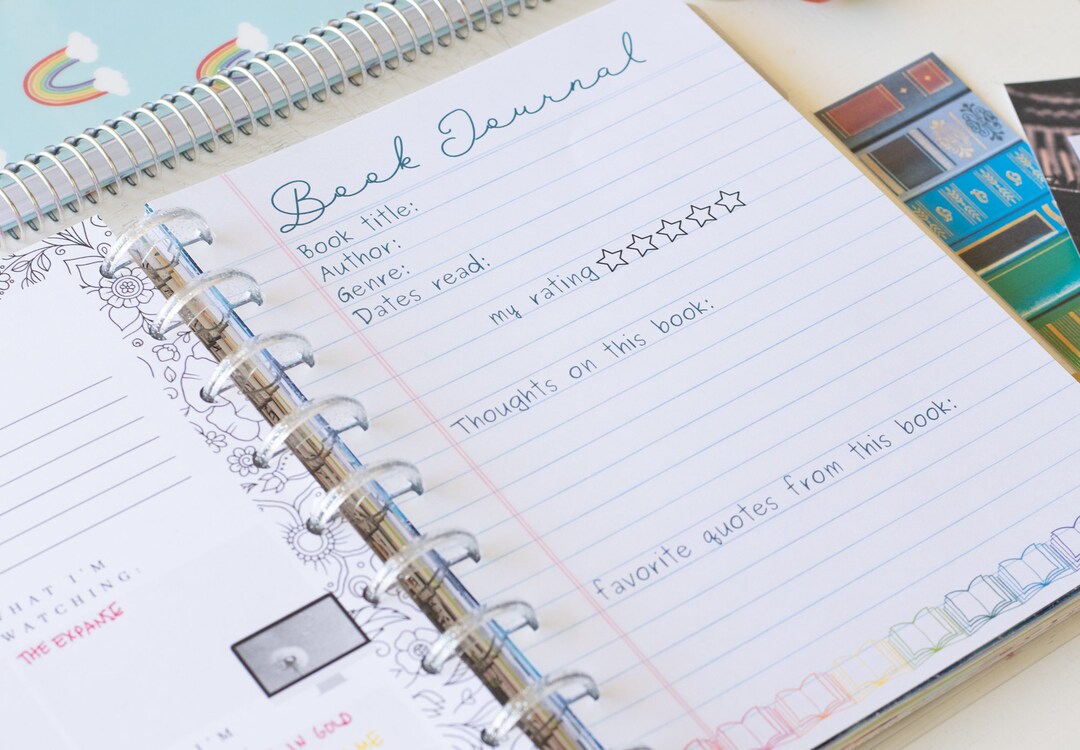 WHAT I'M
WATCHING:
THE EXPANSE
I'M
IN GOLD
ME
Book Journal
Book title:
Author:
Genre:
Dates read:
my rating
Thoughts on this book:
favorite quotes from this book: